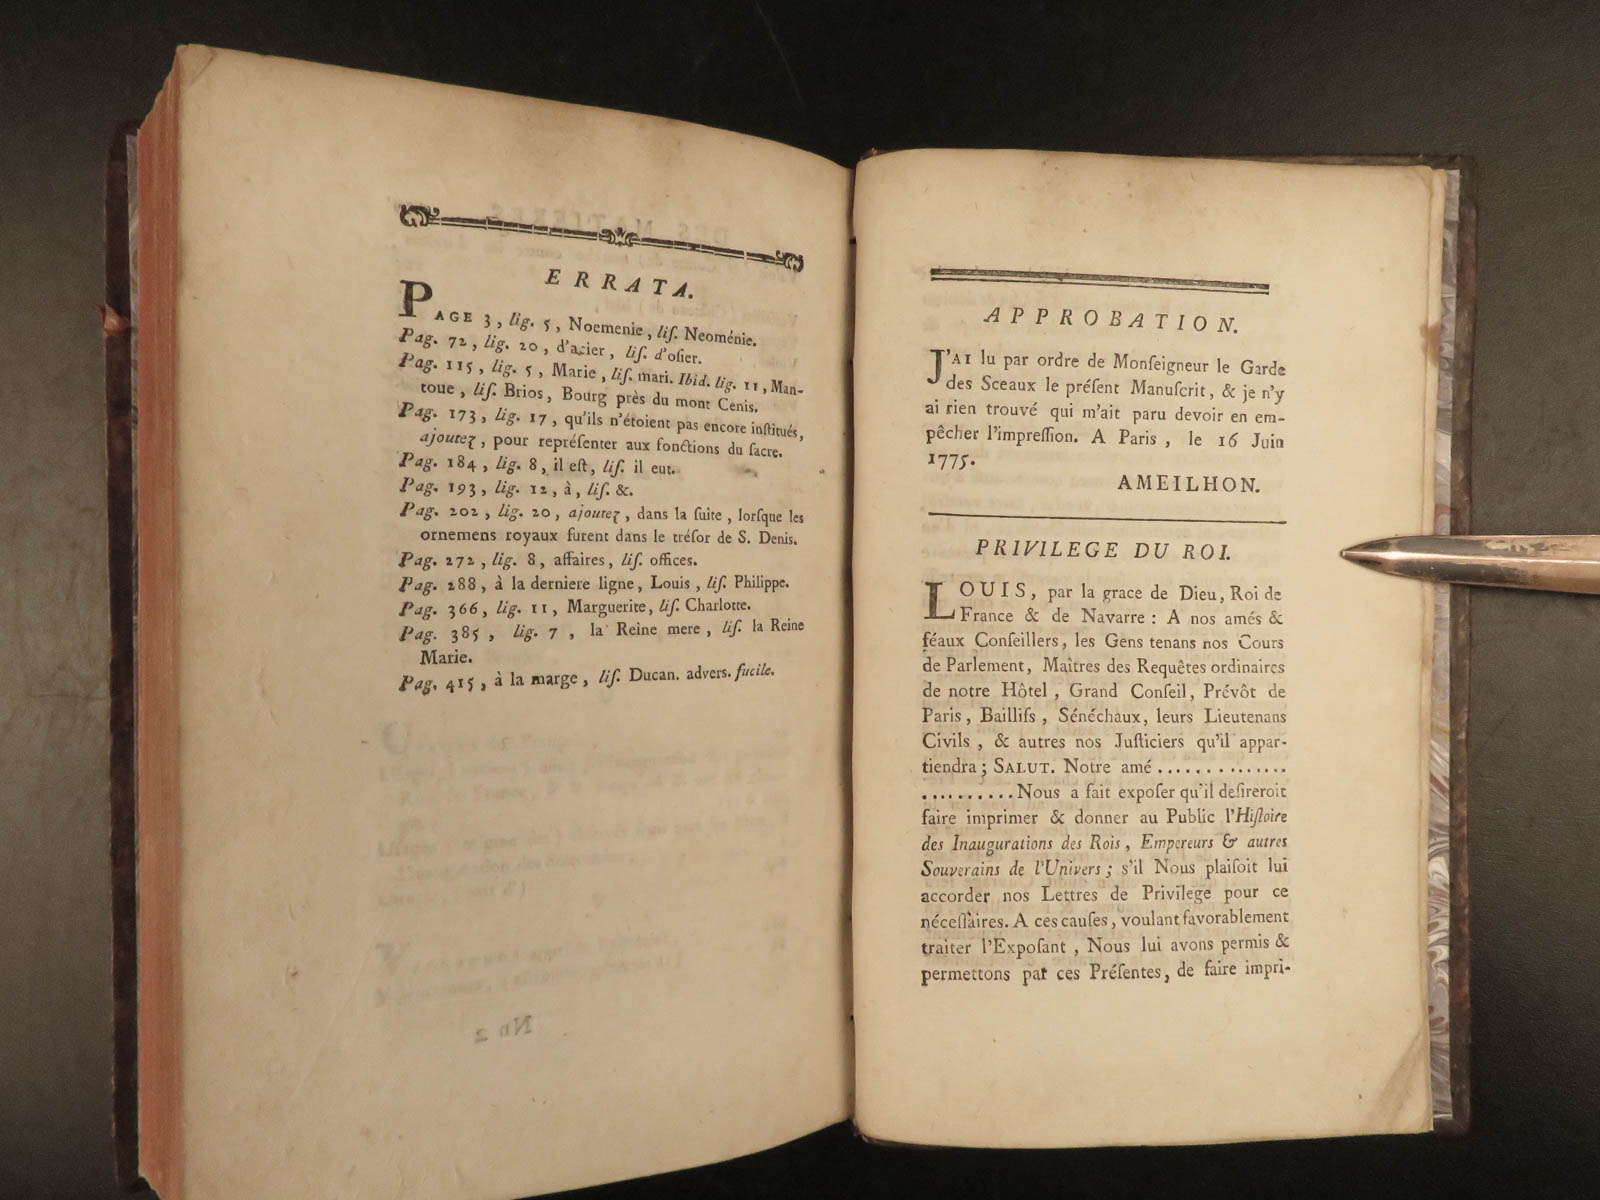 ERRATA.
PAGE 3, lig. 5, Noemenie, liſ. Neoménie.
Pag. 72, lig. 20, d'acier, liſ. d'oſier.
Pag. 115, lig. 5, Marie, liſ. mari. Ibid. lig. 11, Man-
toue, liſ. Brios, Bourg près du mont Cenis.
Pag. 173, lig. 17, qu'ils n'étoient pas encore inſtitués,
ajoutez, pour repréſenter aux fonctions du ſacre.
Pag. 184, lig. 8, il eſt, liſ. il eut.
Pag. 193, lig. 12, à, liſ. &.
Pag. 202, lig. 20, ajoutez, dans la ſuite, lorſque les
ornemens royaux furent dans le tréſor de S. Denis.
Pag. 272, lig. 8, affaires, liſ. offices.
Pag. 288, à la derniere ligne, Louis, liſ. Philippe.
Pag. 366, lig. 11, Marguerite, liſ. Charlotte.
Pag. 385, lig. 7, la Reine mere, liſ. la Reine
Marie.
Pag. 415, à la marge, liſ. Ducan. advers. fucile.
APPROBATION.
J'AI lu par ordre de Monſeigneur le Garde
des Sceaux le préſent Manuſcrit, & je n'y
ai rien trouvé qui m'ait paru devoir en em-
pêcher l'impreſſion. A Paris, le 16 Juin
1775.
AMEILHON.
PRIVILEGE DU ROI.
LOUIS, par la grace de Dieu, Roi de
France & de Navarre : A nos amés &
féaux Conſeillers, les Gens tenans nos Cours
de Parlement, Maîtres des Requêtes ordinaires
de notre Hôtel, Grand Conſeil, Prévôt de
Paris, Baillifs, Sénéchaux, leurs Lieutenans
Civils, & autres nos Juſticiers qu'il appar-
tiendra ; SALUT. Notre amé ..............
..........Nous a fait expoſer qu'il deſireroit
faire imprimer & donner au Public l'Hiſtoire
des Inaugurations des Rois, Empereurs & autres
Souverains de l'Univers ; s'il Nous plaiſoit lui
accorder nos Lettres de Privilege pour ce
néceſſaires. A ces cauſes, voulant favorablement
traiter l'Expoſant, Nous lui avons permis &
permettons par ces Préſentes, de faire impri-